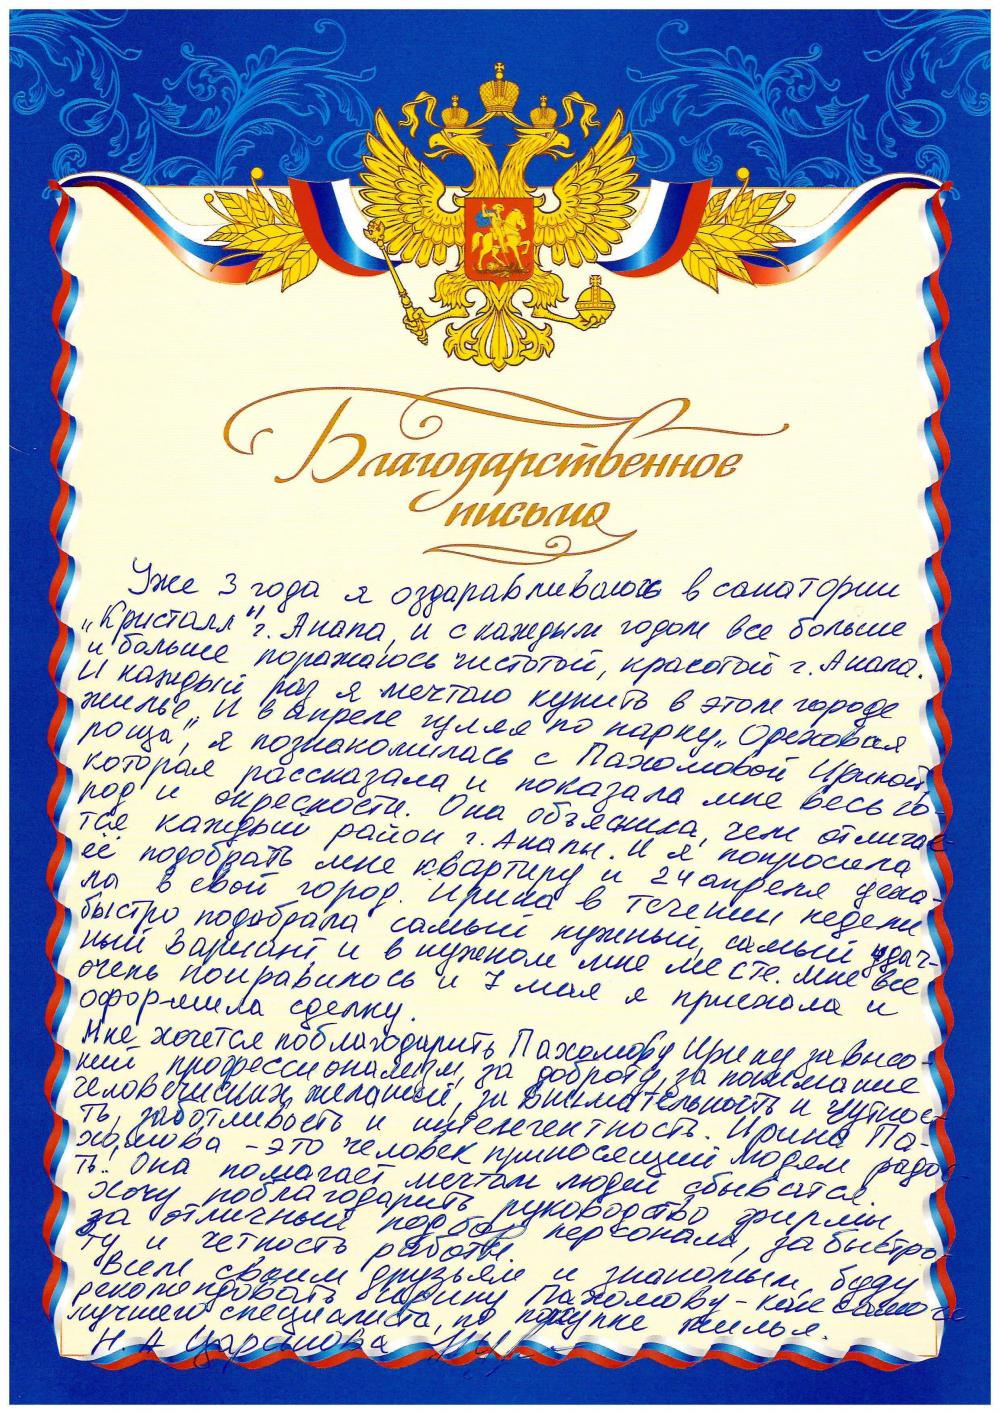 Благодарственное
письмо
Уже 3 года я оздаравливаюсь в санатории
„Кристалл" г. Анапа, и с каждым годом все больше
и больше поражаюсь чистотой, красотой г. Анапа.
И каждый раз я мечтаю купить в этом городе
жильё. И в апреле гуляя по парку „Ореховая
роща", я познакомилась с Пахомовой Ириной,
которая рассказала и показала мне весь го-
род и окресности. Она объяснила, чем отличае-
тся каждый район г. Анапы. И я попросила
её подобрать мне квартиру и 24 апреля уеха-
ла в свой город. Ирина в течении недели
быстро подобрала самый нужный, самый удач-
ный вариант, и в нужном мне месте. Мне все
очень понравилось и 7 мая я приехала и
оформила сделку.
Мне хочется поблагодарить Пахомову Ирину за высо-
кий профессионализм, за доброту, за понимание
человеческих желаний, за внимательность и чутнос-
ть, заботливость и интелегентность. Ирина Па-
хомова - это человек приносящий людям радос-
ть. Она помагает мечтам людей сбыватся.
Хочу поблагодарить руководство фирмы,
за отличный подбор персонала, за быстро-
ту и четность работы.
Всем своим друзьям и знакомым буду
рекомендовать Ирину Пахомову - как самого
лучшего специалиста, по покупке жилья.
Н. А